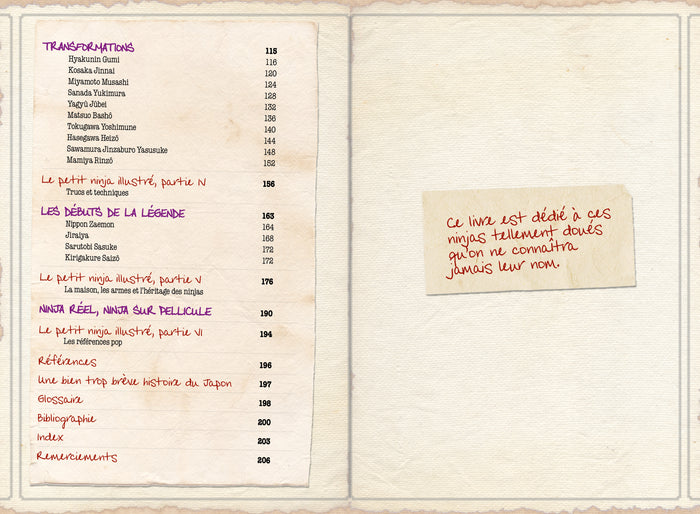 TRANSFORMATIONS 115
Hyakunin Gumi 116
Kosaka Jinnai 120
Miyamoto Musashi 124
Sanada Yukimura 128
Yagyû Jûbei 132
Matsuo Bashô 136
Tokugawa Yoshimune 140
Hasegawa Heizô 144
Sawamura Jinzaburo Yasusuke 148
Mamiya Rinzô 152
Le petit ninja illustré, partie IV 156
Trucs et techniques
LES DÉBUTS DE LA LÉGENDE 163
Nippon Zaemon 164
Jiraiya 168
Sarutobi Sasuke 172
Kirigakure Saizô 172
Le petit ninja illustré, partie V 176
La maison, les armes et l'héritage des ninjas
NINJA RÉEL, NINJA SUR PELLICULE 190
Le petit ninja illustré, partie VI 194
Les références pop
Références 196
Une bien trop brève histoire du Japon 197
Glossaire 198
Bibliographie 200
Index 203
Remerciements 206
Ce livre est dédié à ces
ninjas tellement doués
qu'on ne connaîtra
jamais leur nom.